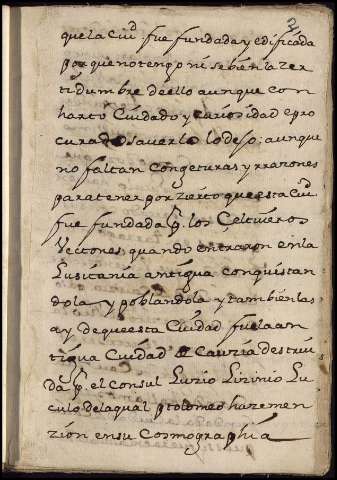 2
que la Ciud. fue fundada y edificada
porque no tengo ni se bien la zer
tidumbre de ello aunque con
harto Cuidado y curiosidad e pro
curado saverlo lo deso; aunque
no faltan congeturas y rrazones
para tener por zierto que esta Ciud
fue fundada p. los Celtiueros
Vectones quando entraron en la
Lusitania antigua conquistan
dola y poblandola y tambien las
ay de que esta Ciudad fue la an
tigua Ciudad Cauria destrui
da p. el Consul Luzio Lizinio Lu
culo de la qual ptolomeo haze men
zion en su Cosmographia